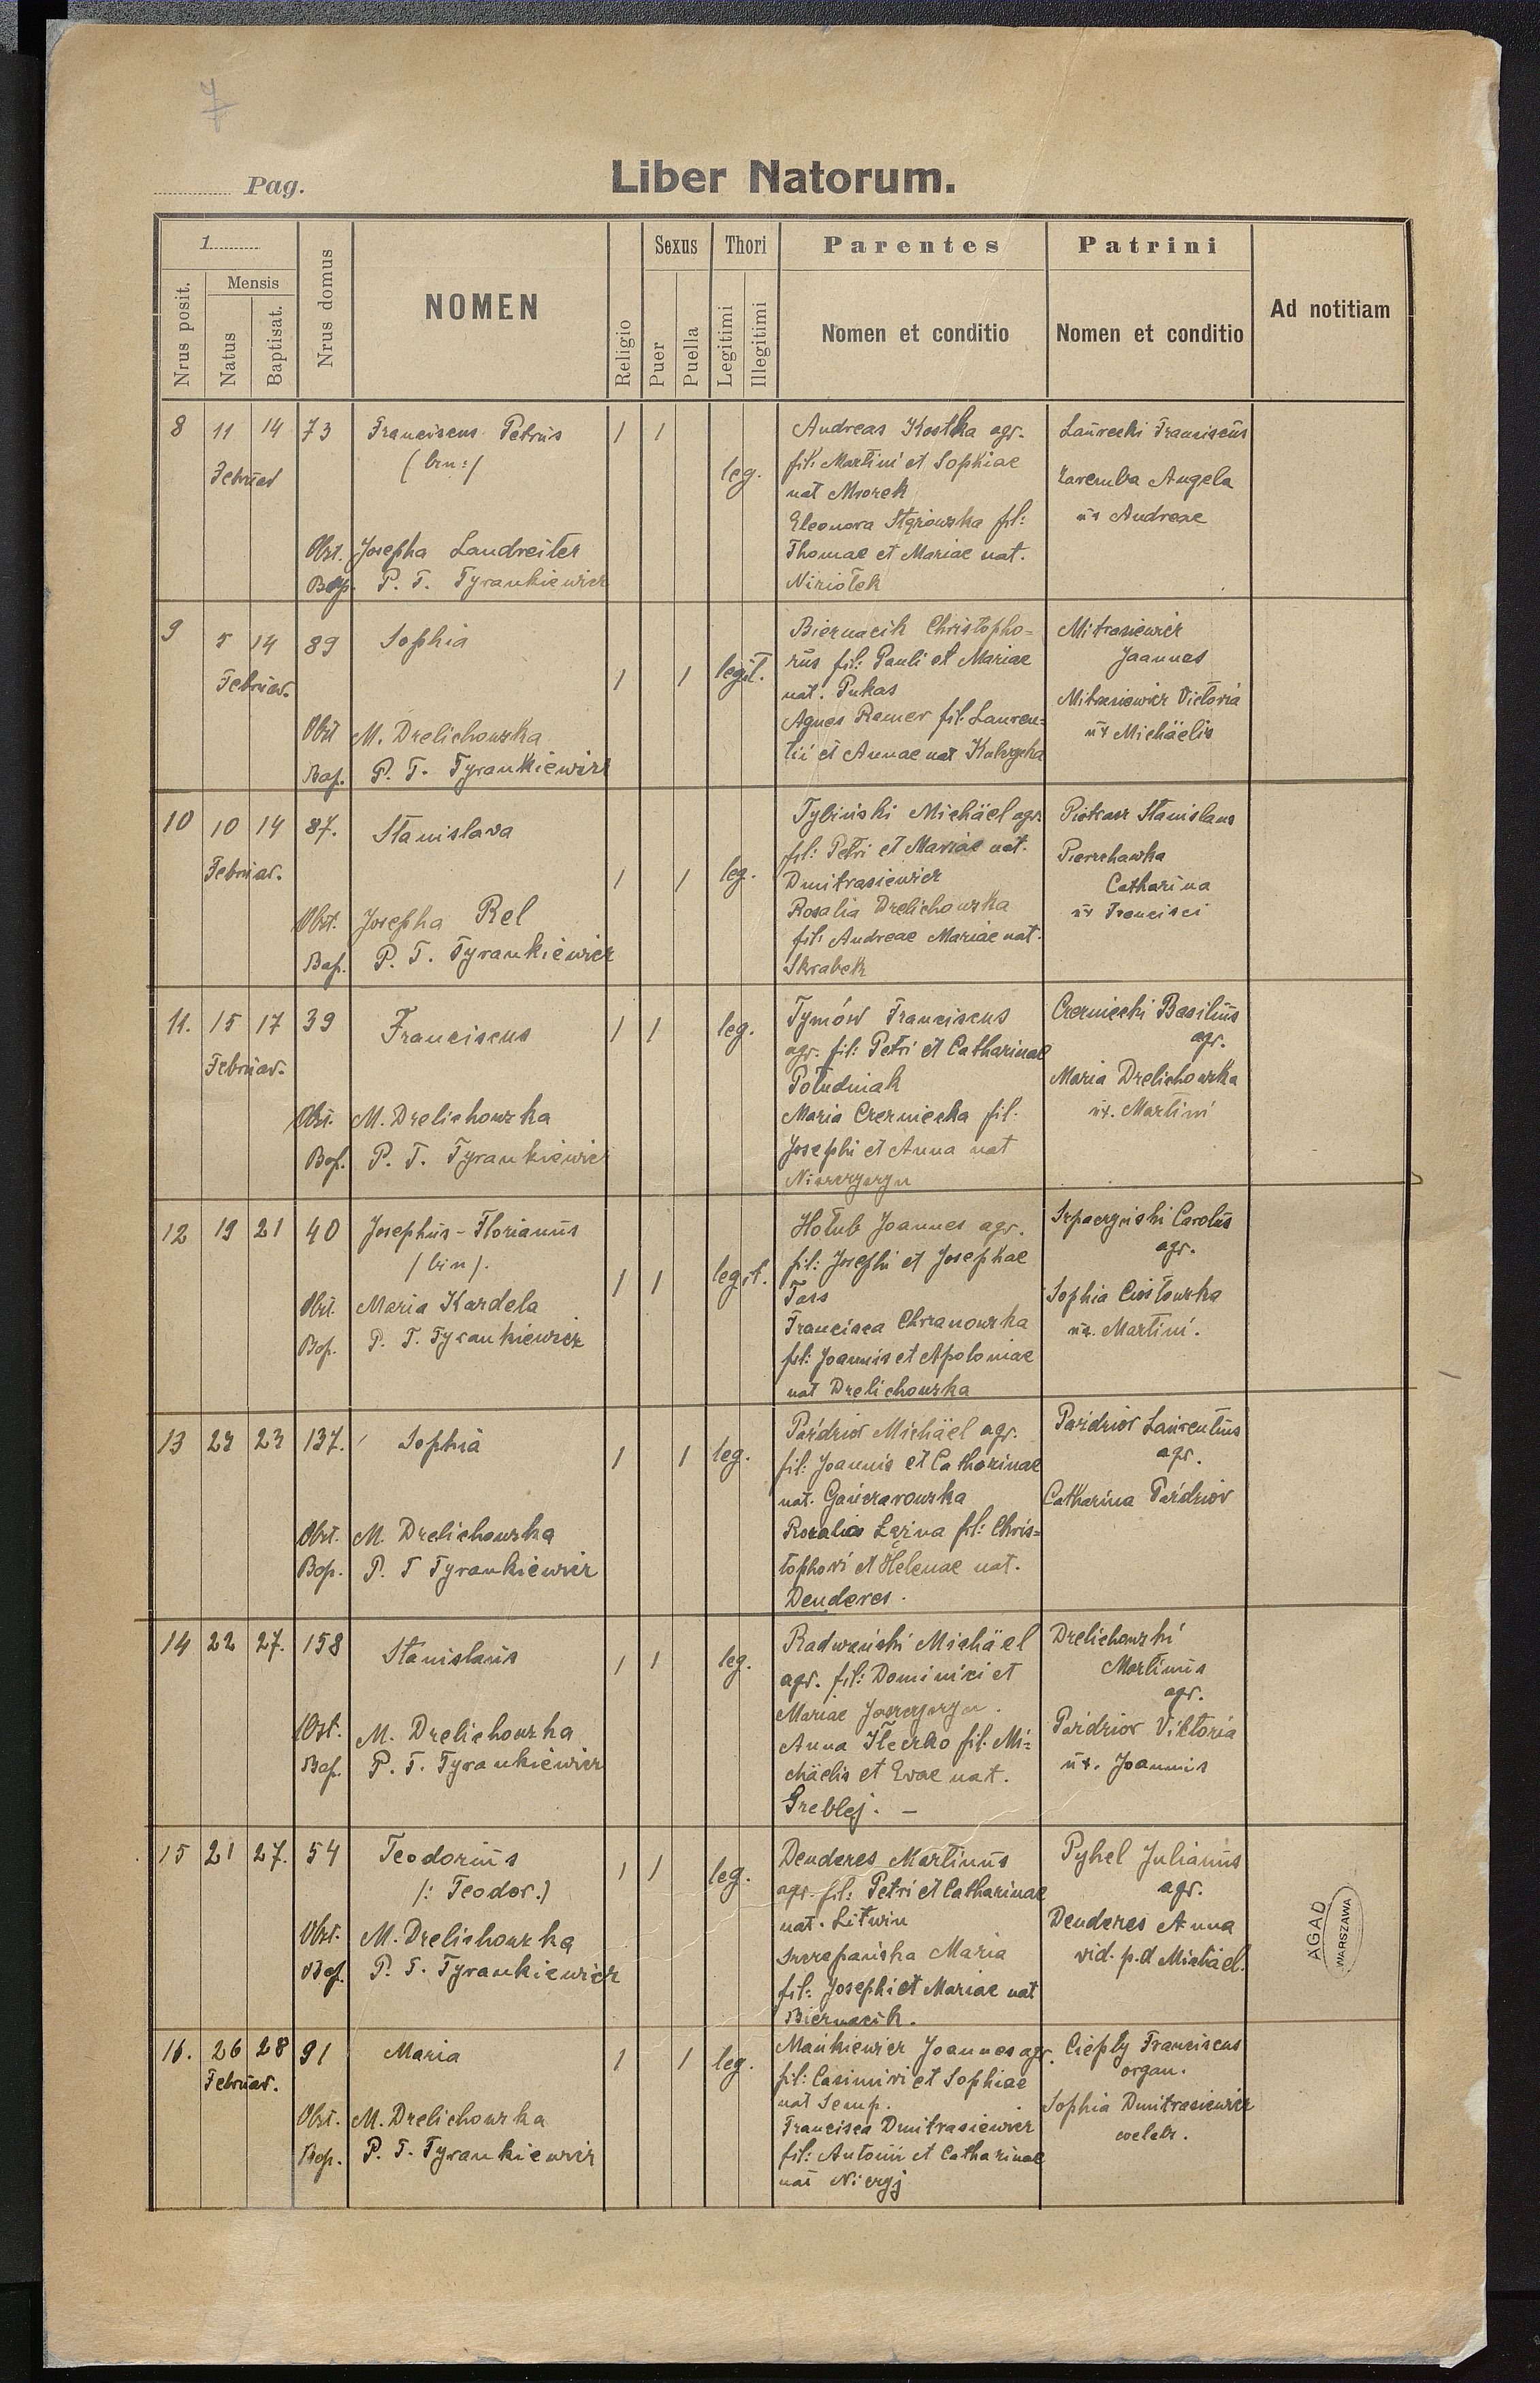 7
Pag.
Liber Natorum.
1
Nrus posit.
Mensis
Natus
Baptisat.
Nrus domus
NOMEN
Religio
Sexus
Puer
Puella
Thori
Legitimi
Illegitimi
Parentes
Nomen et conditio
Patrini
Nomen et conditio
Ad notitiam
8 11 14 73 Franciscus Petrus 1 1
Februar (bin:)
leg.
Obst. Josepha Landreiter
Bap. P. T. Tyrankiewicz
Andreas Kostka agr.
fil: Martini et Sophiae
nat Mrozek
Eleonora fil:
Thomae et Mariae nat.
Niziołek
Laurecki Franciscus
Zaremba Angela
ux Andreae
9 5 14 89 Sophia
Februar.
1 1 legit.
Obst M. Drelichowska
Bap. P. T. Tyrankiewicz
Biernacik Christopho-
rus fil: Pauli et Mariae
nat. Pukas
Agnes Ramer fil: Lauren-
tii et Annae nat
Mitrasiewicz
Joannes
Mitrasiewicz Victoria
ux Michäelis
10 10 14 87. Stanislava
Februar.
1 1 leg.
Obst. Josepha Rel
Bap. P. T. Tyrankiewicz
Tybiński Michäel agr.
fil: Petri et Mariae nat.
Dmitrasiewicz
Rosalia Drelichowska
fil: Andreae Mariae nat.
Skrabek
Piotrasz Stanislaus
Pierzchawka
Catharina
ux Francisci
11. 15 17 39 Franciscus 1 1 leg.
Februar.
Obst. M. Drelichowska
Bap. P. T. Tyrankiewicz
Tymów Franciscus
agr. fil: Petri et Catharinae
Południak
Maria Czerniecka fil.
Josephi et Anna nat
Czerniecki Basilius
agr.
Maria Drelichowska
ux. Martini
12 19 21 40 Josephus-Florianus
/bin/.
1 1 legit.
Obst. Maria Kardela
Bap. P. T. Tyrankiewicz
Hołub Joannes agr.
fil: Josephi et Josephae
Tars
Francisca Chrzanowska
fil: Joannis et Apoloniae
nat Drelichowska
Szpaczyński Carolus
agr.
Sophia Ciosłowska
ux. Martini.
13 23 23 137. Sophia
1 1 leg.
Obst. M. Drelichowska
Bap. P. T Tyrankiewicz
Paździor Michäel agr.
fil: Joannis et Catharinae
nat. Gańczarowska
Rozalia Łęźna fil: Chris-
tophori et Helenae nat.
Denderes.
Paździor Laurentius
agr.
Catharina Paździor
14 22 27. 158 Stanislaus 1 1 leg.
Obst. M. Drelichowska
Bap. P. T. Tyrankiewicz
Radwański Michäel
agr. fil: Dominici et
Mariae
Anna fil: Mi-
chäelis et Evae nat.
Greblej. –
Drelichowski
Martinus
agr.
Paździor Viktoria
ux. Joannis
15 21 27. 54 Teodorius 1 1 leg.
(: Teodor.)
Obst. M. Drelichowska
Bap. P. T. Tyrankiewicz
Denderes Martinus
agr. fil: Petri et Catharinae
nat. Litwin
Szczepańska Maria
fil: Josephi et Mariae nat
Biernacik.
Pyhel Julianus
agr.
Denderes Anna
vid. p.d Michäel.
AGAD
WARSZAWA
16. 26 28 91 Maria 1 1 leg.
Februar.
Obst. M. Drelichowska
Bap. P. T. Tyrankiewicz
Mańkiewicz Joannes agr.
fil: Casimiri et Sophiae
nat Semp.
Francisca Dmitrasiewicz
fil: Antonii et Catharinae
nat
Ciepły Franciscus
organ.
Sophia Dmitrasiewicz